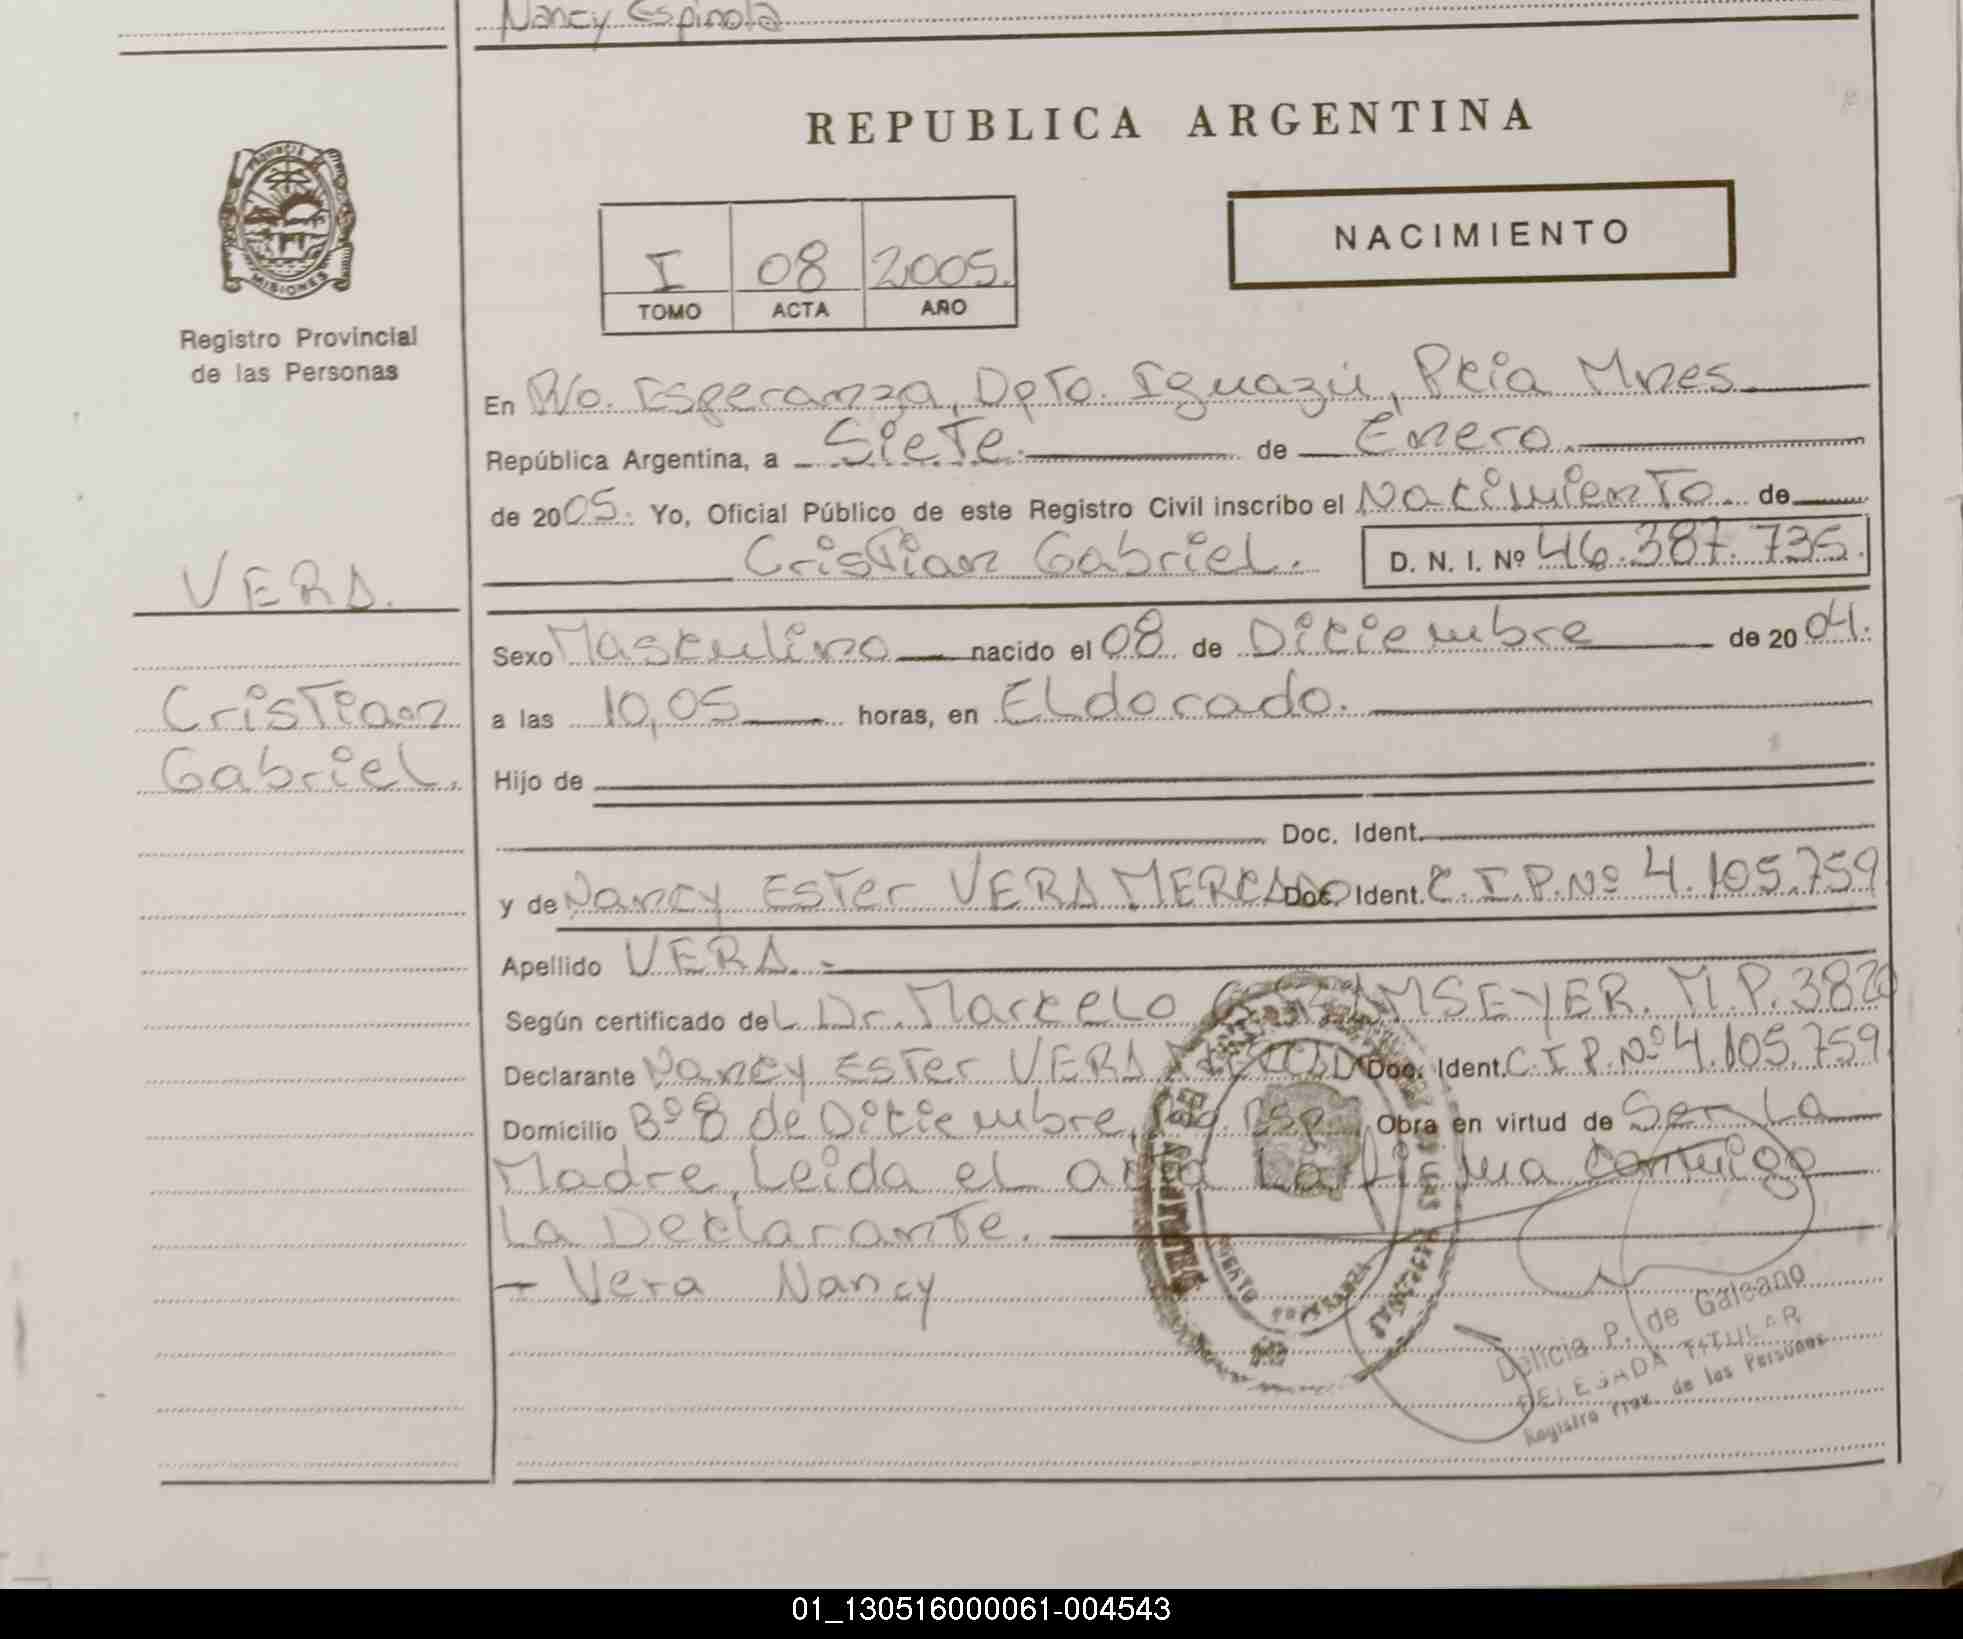 Nancy Espinola
REPUBLICA ARGENTINA
NACIMIENTO
I 08 2005.
TOMO ACTA AÑO
PROVINCIA
MISIONES
Registro Provincial
de las Personas
VERA.
Cristian
Gabriel.
En Pto. Esperanza, Dpto. Iguazú, Pcia Mnes.
República Argentina, a Siete. de Enero.
de 2005. Yo, Oficial Público de este Registro Civil inscribo el Nacimiento de
Cristian Gabriel. D. N. I. Nº 46.387.735.
Sexo Masculino nacido el 08 de Diciembre de 2004.
a las 10,05 horas, en Eldorado.
Hijo de
Doc. Ident.
y de Nancy Ester VERA MERCADO Doc. Ident. C.I.P.Nº 4.105.759
Apellido VERA.-
Según certificado del Dr. Marcelo M.P. 382
Declarante Nancy Ester VERA Doc. Ident. C.I.P.Nº 4.105.759.
Domicilio Bº 8 de Diciembre, Pto. Esp. Obra en virtud de Ser La
Madre, Leida el acta La firma conmigo
La Declarante.
- Vera Nancy
PUERTO ESPERANZA
Delicia P. de Galeano
DELEGADA TITULAR
Registro Prov. de las Personas
01_130516000061-004543